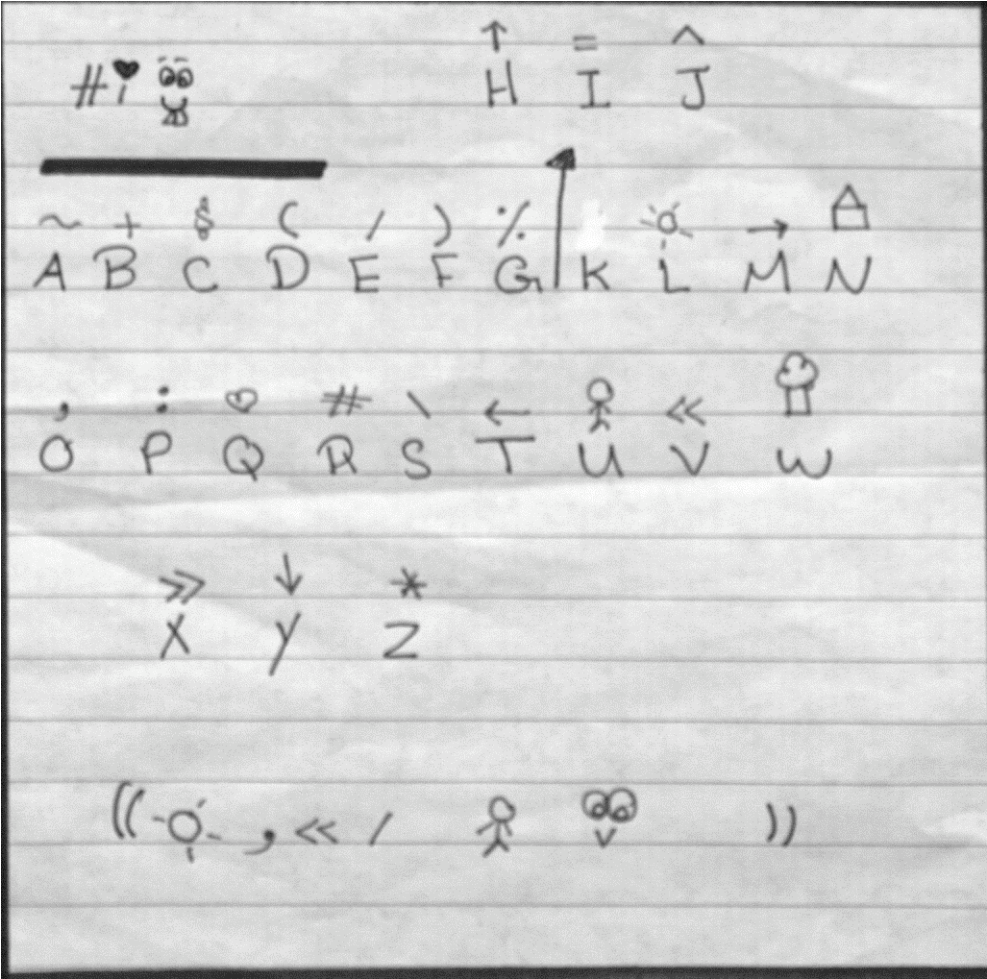 ↑ = ^
#i H I J
~ + $ ( / ) % → 
A B C D E F G K L M N
, : ♡ # \ ← ≪
O P Q R S T U V W
≫ ↓ *
X Y Z
(( , ≪ / ))